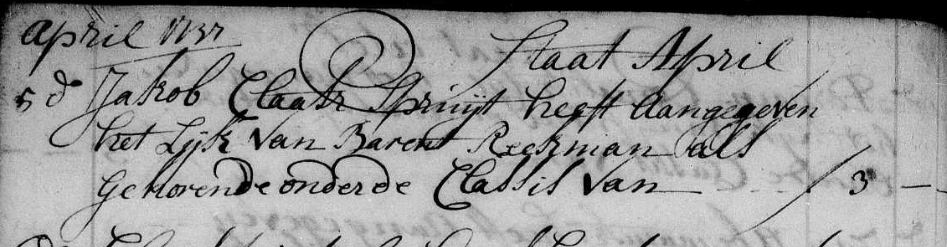 April 1737
Staat April
5 d° Jakob Claasz Spruijt heeft Aangegeven
het Lijk van Barent Reekman als
Gehorende onder de Classis van / 3 —